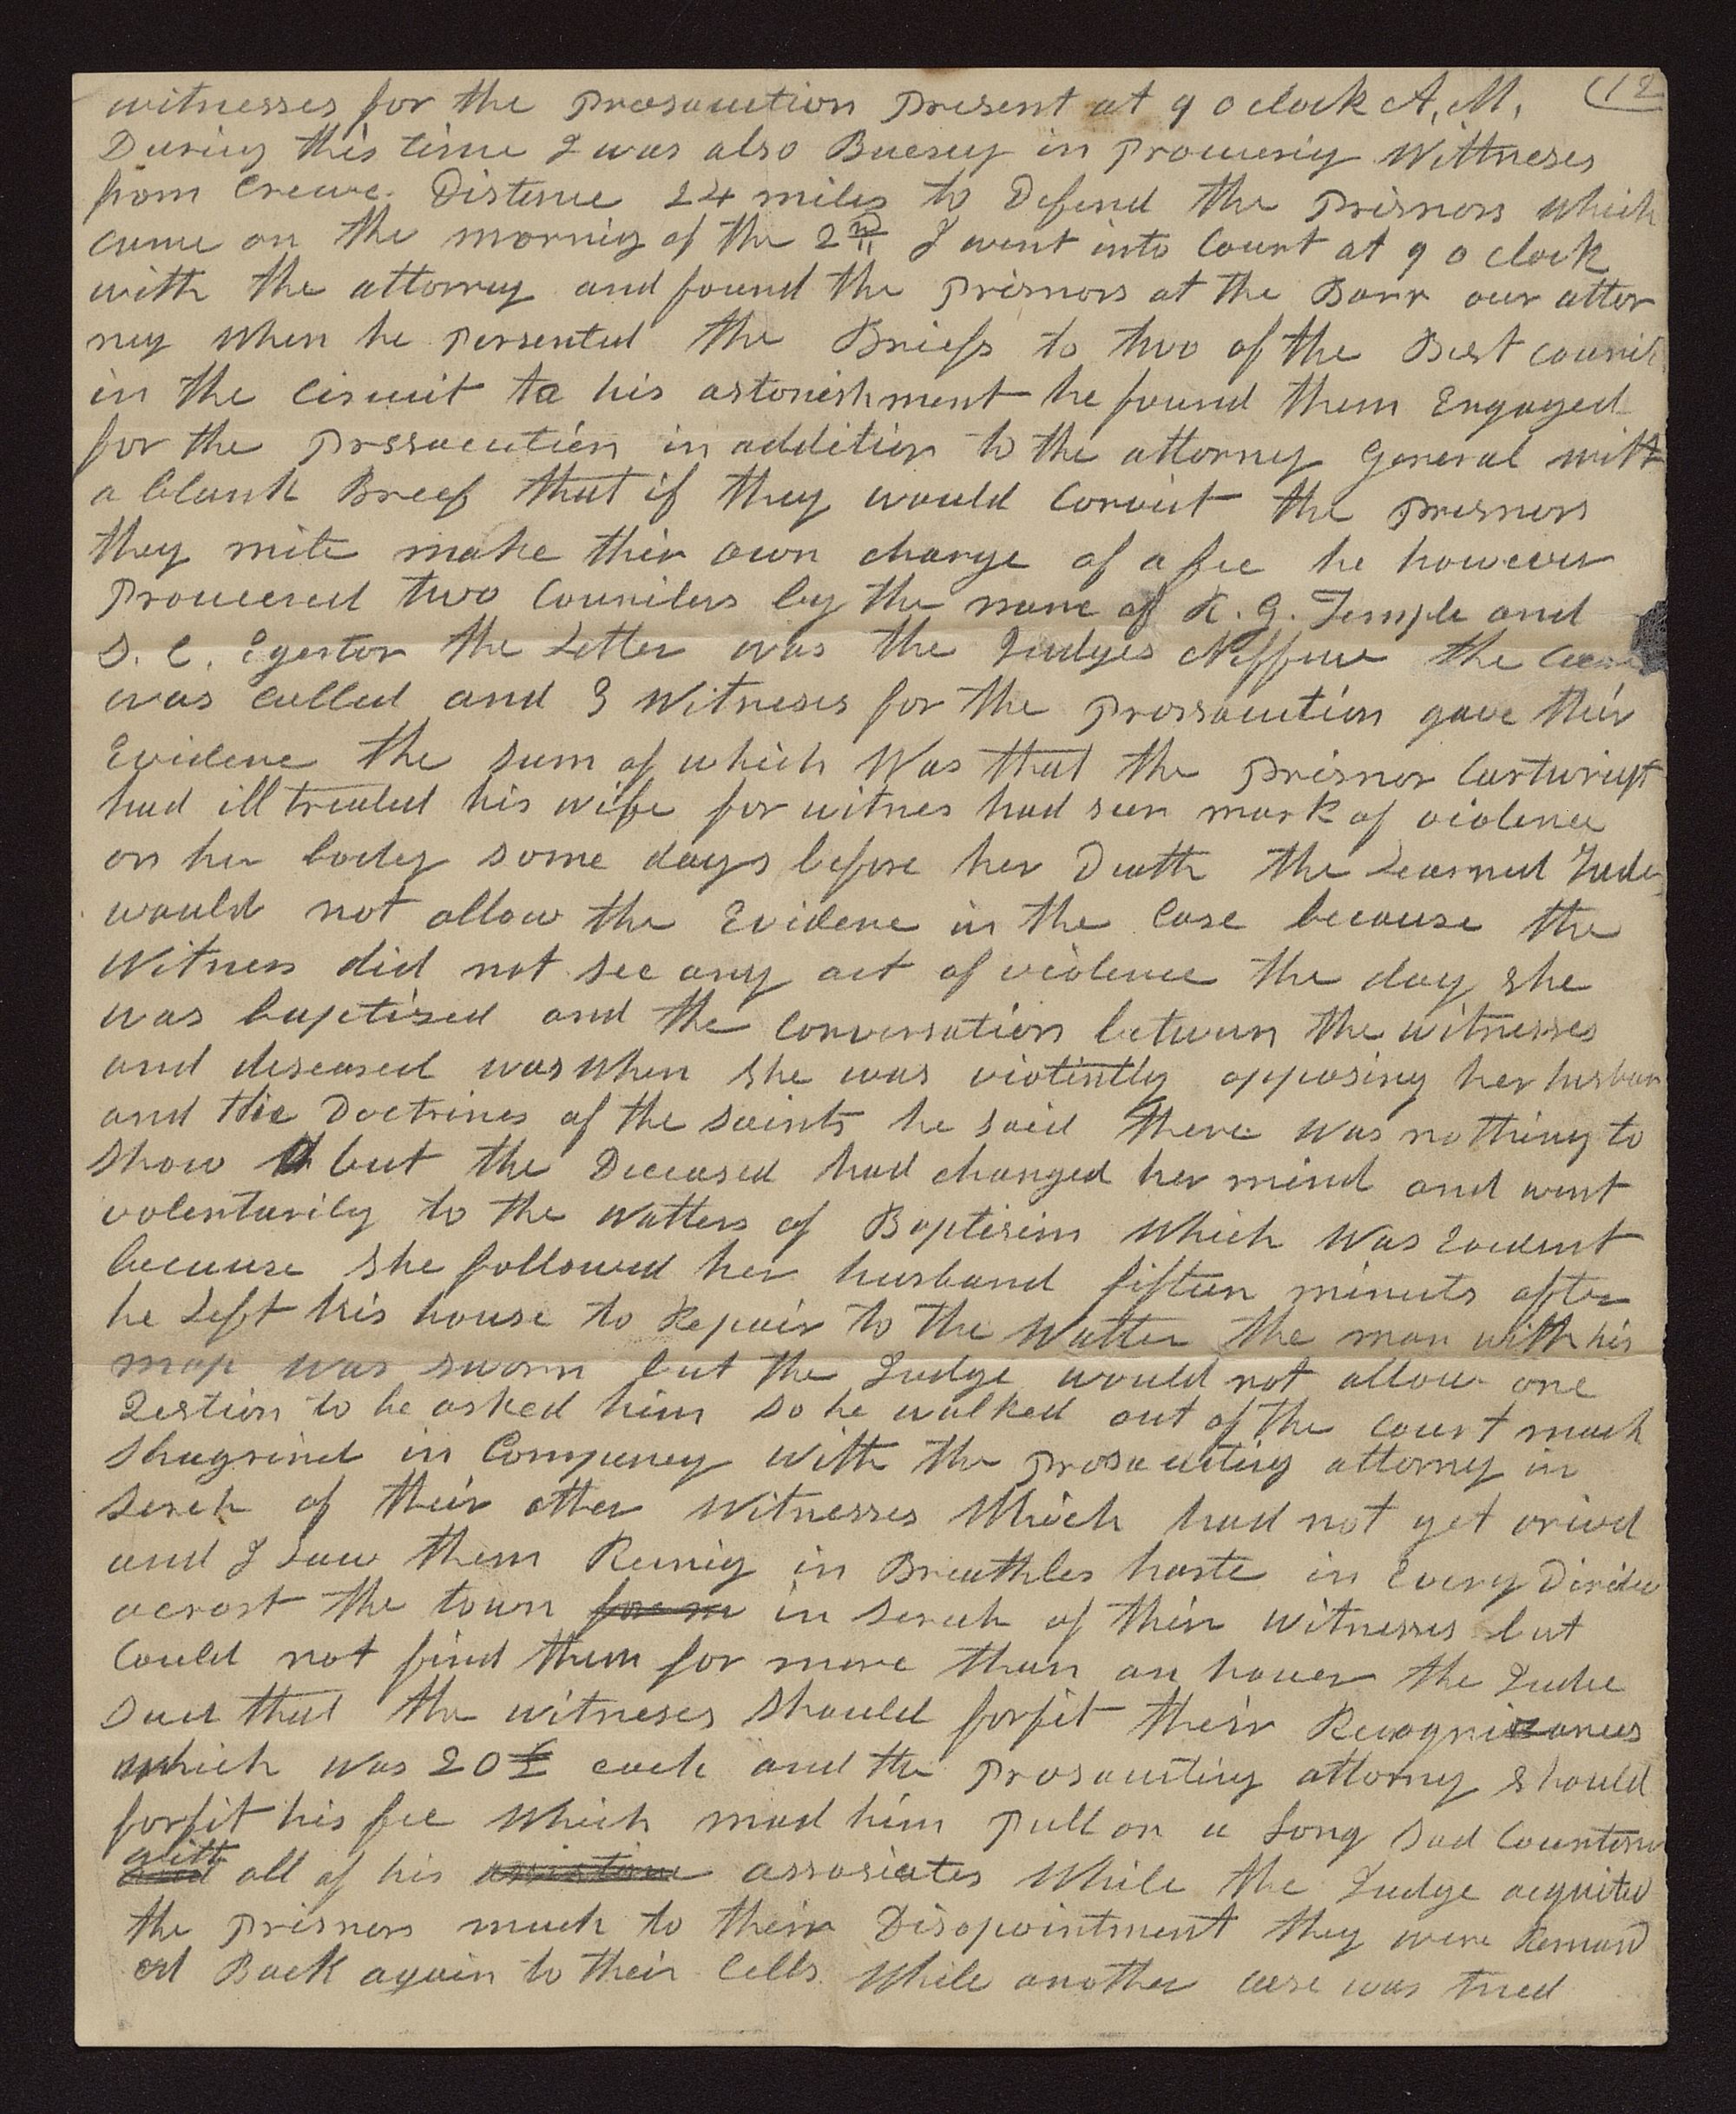 witnesses for the prosacution present at 9 o clock A, M, (12
During this time I was also Buesey in procuerig Wittneses
from Crewe. Distence 24 miles to Defend the prisnors which
came on the mornig of the 2nd I went into Court at 9 o clock
with the attorney and found the prisnors at the Barr our attor
ney when he persented the Briefs to two of the Best
in the Circuit to his astonishment he found them Engaged
for the prssacution in addition to the attorney General with
a blank Breef that if they would Convict the prisnors
they mite make thier own charge of a fee he however
procuered two Councilers by the name of R. G. Temple and
S. C. Egerton the Letter was the Judges Neffue the Case
was called and 3 Witneses for the prossacution gave their
Evidence the sum of which Was that the prisnor Cartwrigt
had ill treated his wife for witnes had seen mark of violence
on her body some days before her Death the Learned Jude
would not allow the Evidence in the Case because the
Witness did not see any act of violence the day she
was baptised and the Conversation between the witnesses
and deseased was when she was violintly opposing her husban
and the Doctrines of the saints he said there was nothing to
show but the Deceased had changed her mind and went
volentarily to the watters of Baptisim Which Was Evedent
because she followed her husband fifteen minuts after
he Left his house to Repair to the Watter the man with his
map was sworn but the Judge would not allow one
Qestion to be asked him so he walked out of the Court much
Shagrined in Compeney With the prosacuting attorny in
serch of their other Witnesses Which had not yet arived
and I saw them Runig in Breathles haste in Every
acrost the town in serech of their witnesses but
Could not find them for more than an houer the Judre
Sued that the witneses should forfit their Recognizances
which was 20£ each and the prosacuting attorny should
forfit his fee Which mad him pull on a Long Sad
with all of his assosicates While the Judge acquited
the prisnors much to their Disopointment they were Remand
ed Back again to their Cells While another case was tried